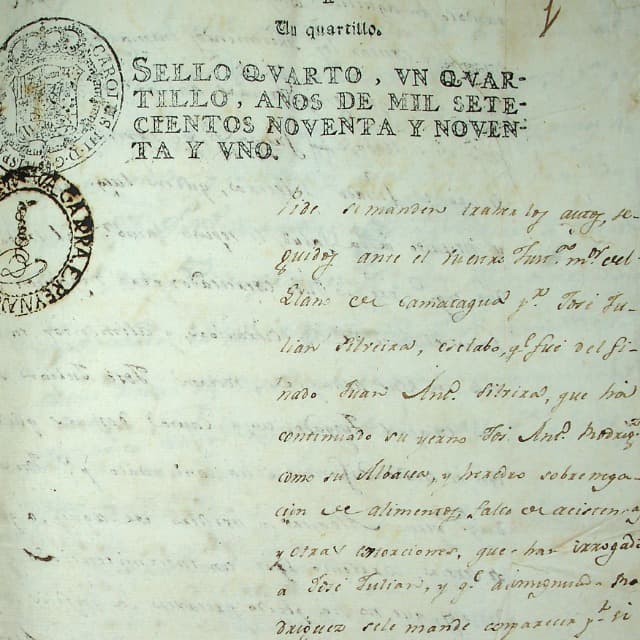 Un quartillo.
SELLO QVARTO, VN QVAR-
TILLO, AÑOS DE MIL SETE-
CIENTOS NOVENTA Y NOVEN-
TA Y VNO.
Pide se manden traher los autos, se
guidos ante el Then.te
Llano de Camatagua p.r José Ju-
lian Silveira, esclabo, q.e fué del fi-
nado Juan Ant.o Silveira, que ha
continuado su yerno José Ant.o Rodrig.z
como su Albacea, y heredro sobre nega-
cion de alimentos, falta de acistencia
y otras extorciones, que han irrogado
a José Julian, y q.e
driguez se le mande comparecer p.r si